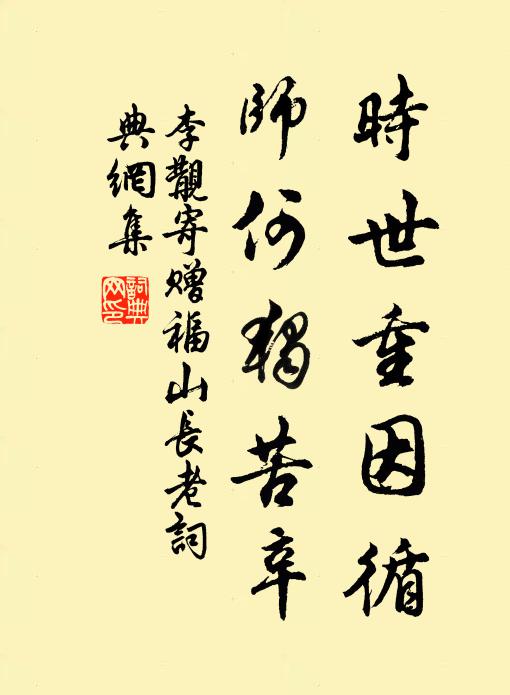 時世重因循
師何獨苦辛
李觀寄贈福山長老詞
典網集
詞典
网印